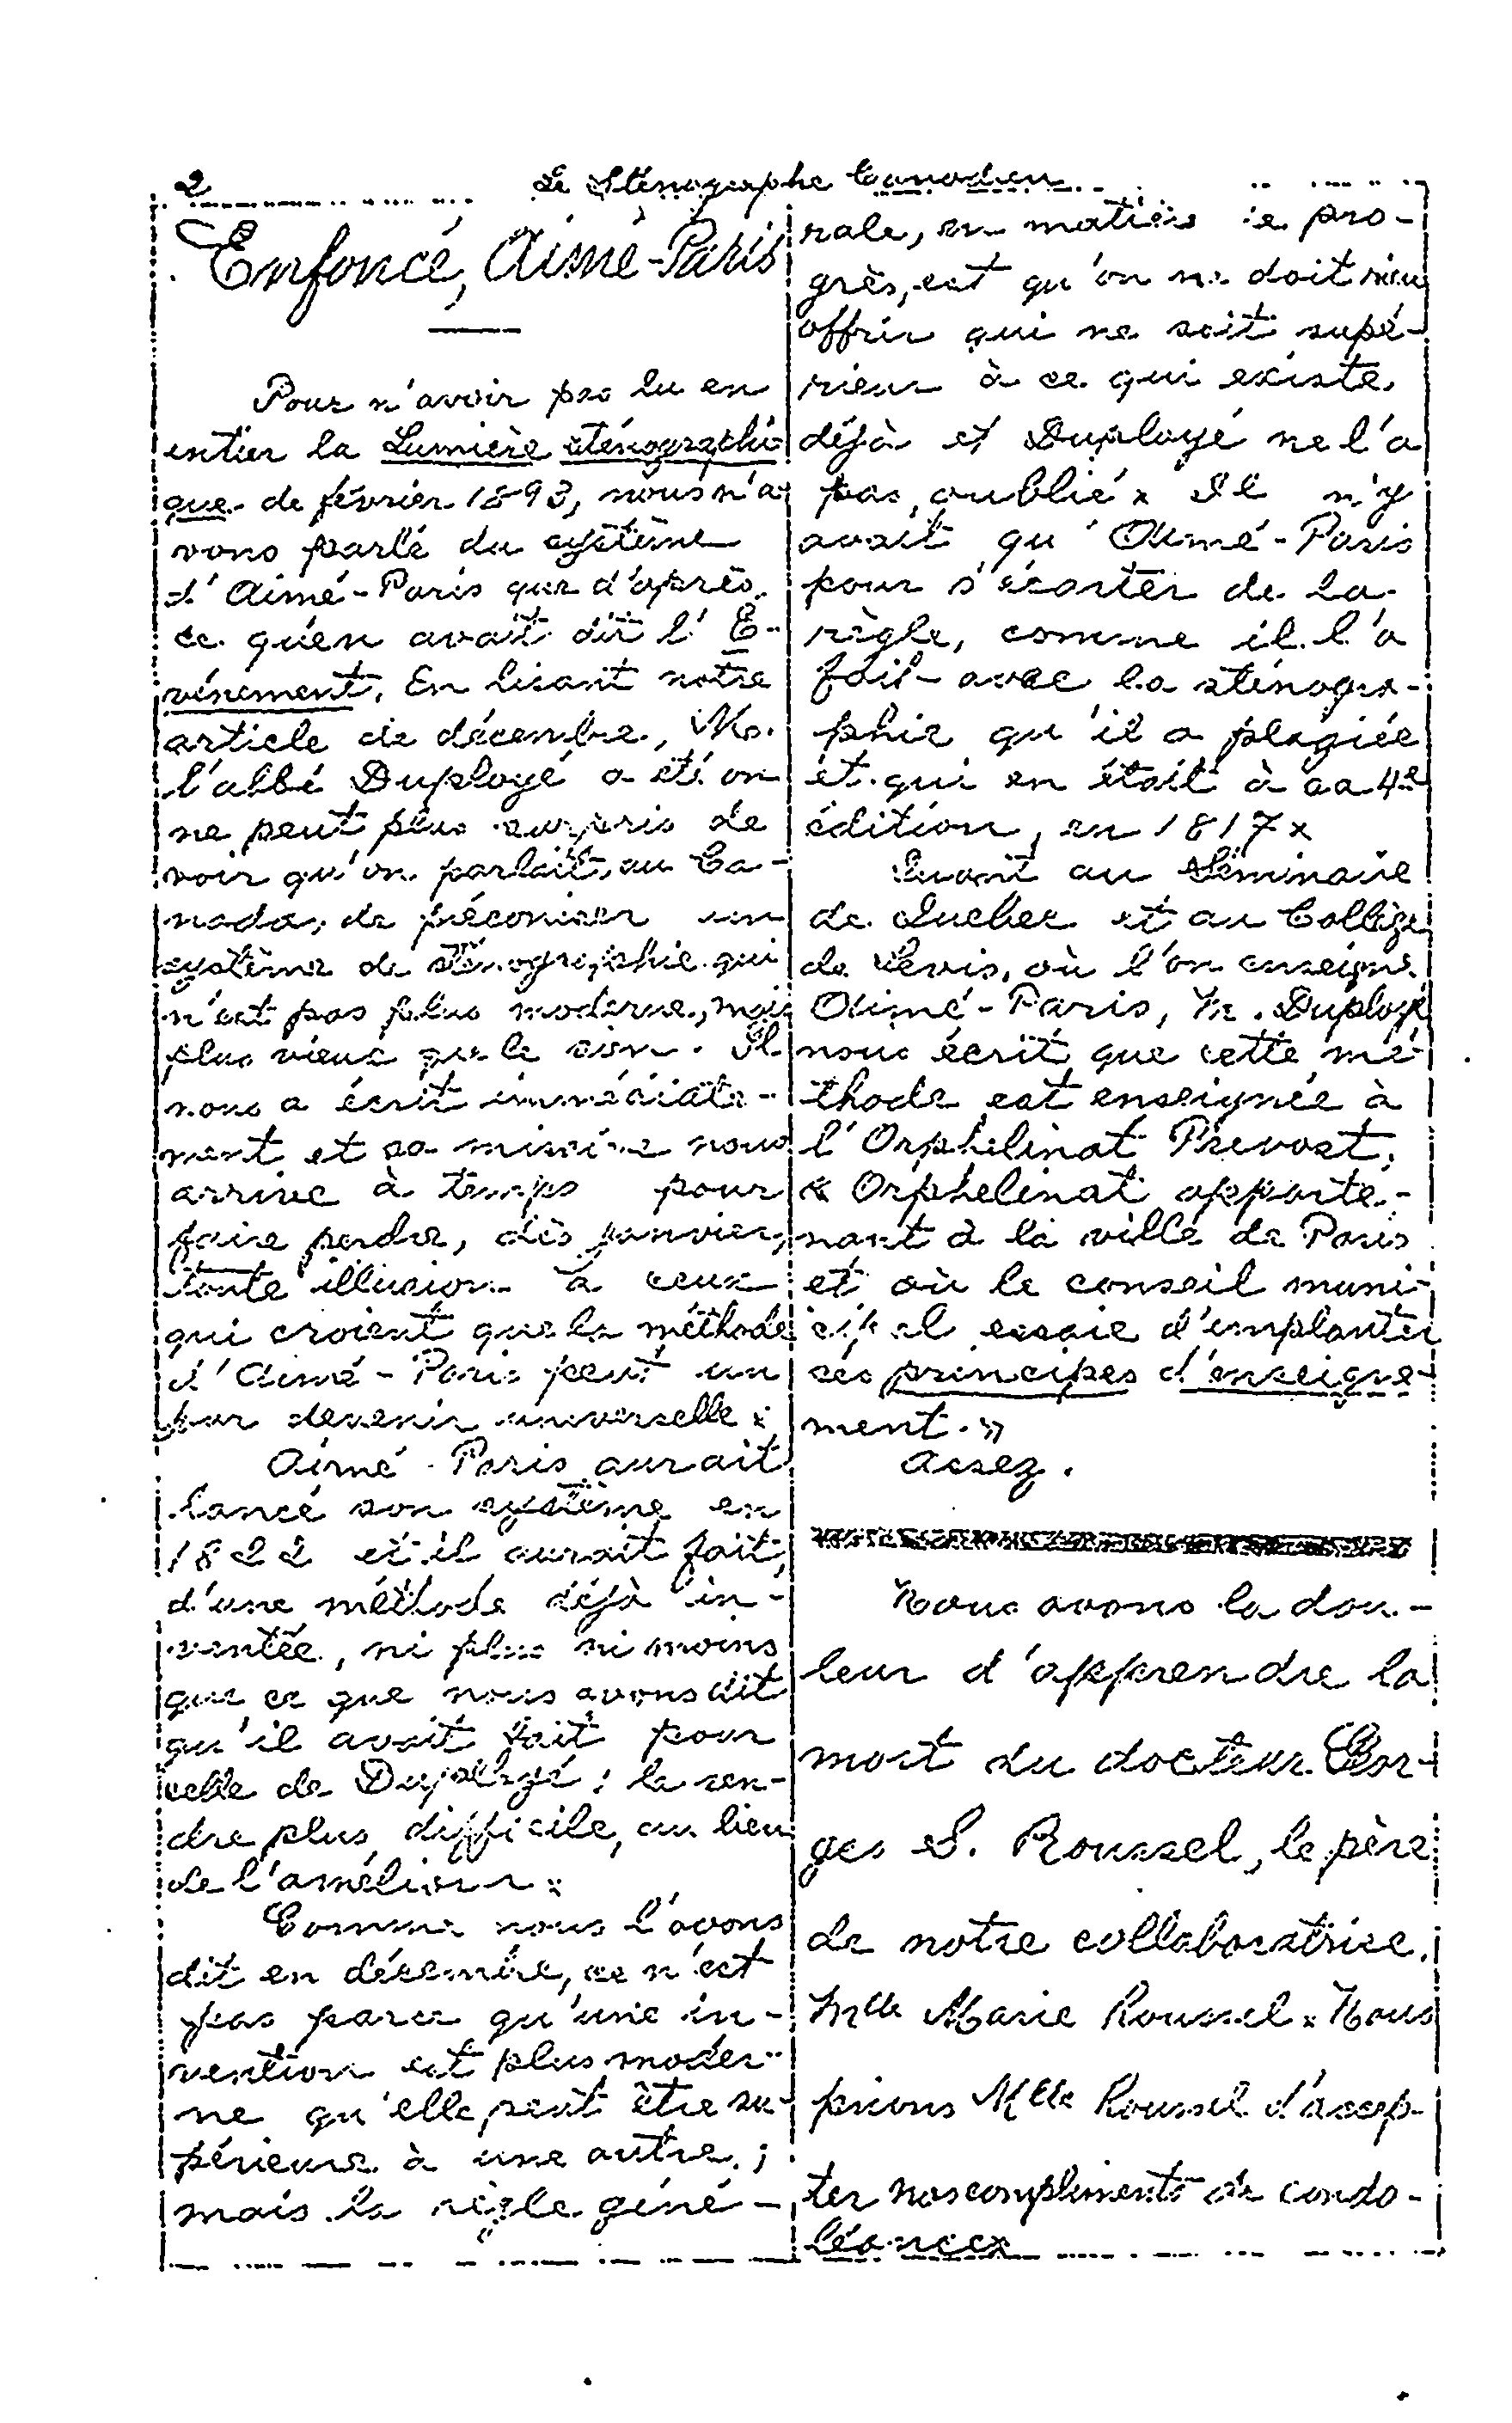 2
Le Sténographe Canadien
Enfoncé, Aimé-Paris
Pour n'avoir pas lu en
entier la Lumière sténographi-
que de février 1893, nous n'a-
vons parlé du système
d'Aimé-Paris que d'après
ce qu'en avait dit l'E-
vénement. En lisant notre
article de décembre, Mr.
l'abbé Duployé a été on
ne peut plus surpris de
voir qu'on parlait, au Ca-
nada, de préconiser un
système de sténographie qui
n'est pas plus moderne, mais
plus vieux que le sien. Il
nous a écrit immédiate-
ment et sa missive nous
arrive à temps pour
faire perdre, dès janvier,
toute illusion à ceux
qui croient que la méthode
d'Aimé-Paris peut un
jour devenir universelle x
Aimé-Paris aurait
lancé son système en
1822 et il aurait fait,
d'une méthode déjà in-
ventée, ni plus ni moins
que ce que nous avons dit
qu'il avait fait pour
celle de Duployé : la ren-
dre plus difficile, au lieu
de l'améliorer x
Comme nous l'avons
dit en décembre, ce n'est
pas parce qu'une in-
vention est plus moder-
ne qu'elle peut être su-
périeure à une autre ;
mais la règle géné-
rale, en matière de pro-
grès, est qu'on ne doit rien
offrir qui ne soit supé-
rieur à ce qui existe
déjà et Duployé ne l'a
pas oublié x Il n'y
avait qu'Aimé-Paris
pour s'écarter de la
règle, comme il l'a
fait avec la sténogra-
phie qu'il a plagiée
et qui en était à sa 4e
édition, en 1817 x
Quant au Séminaire
de Québec et au Collège
de Lévis, où l'on enseigne
Aimé-Paris, M. Duployé
nous écrit que cette mé-
thode est enseignée à
l'Orphelinat Prevost,
« Orphelinat apparte-
nant à la ville de Paris
et où le conseil muni-
cipal essaie d'implanter
ses principes d'enseigne-
ment. »
Assez.
Nous avons la dou-
leur d'apprendre la
mort du docteur Geor-
ges S. Roussel, le père
de notre collaboratrice,
Mlle Marie Roussel x Nous
prions Mlle Roussel d'accep-
ter nos compliments de condo-
léances x